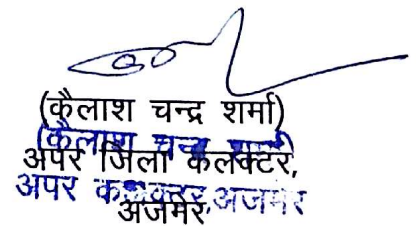 (कैलाश चन्द्र शर्मा)
(कैलाश चन्द्र शर्मा)
अपर जिला कलक्टर,
अपर कलक्टर अजमेर
अजमेर